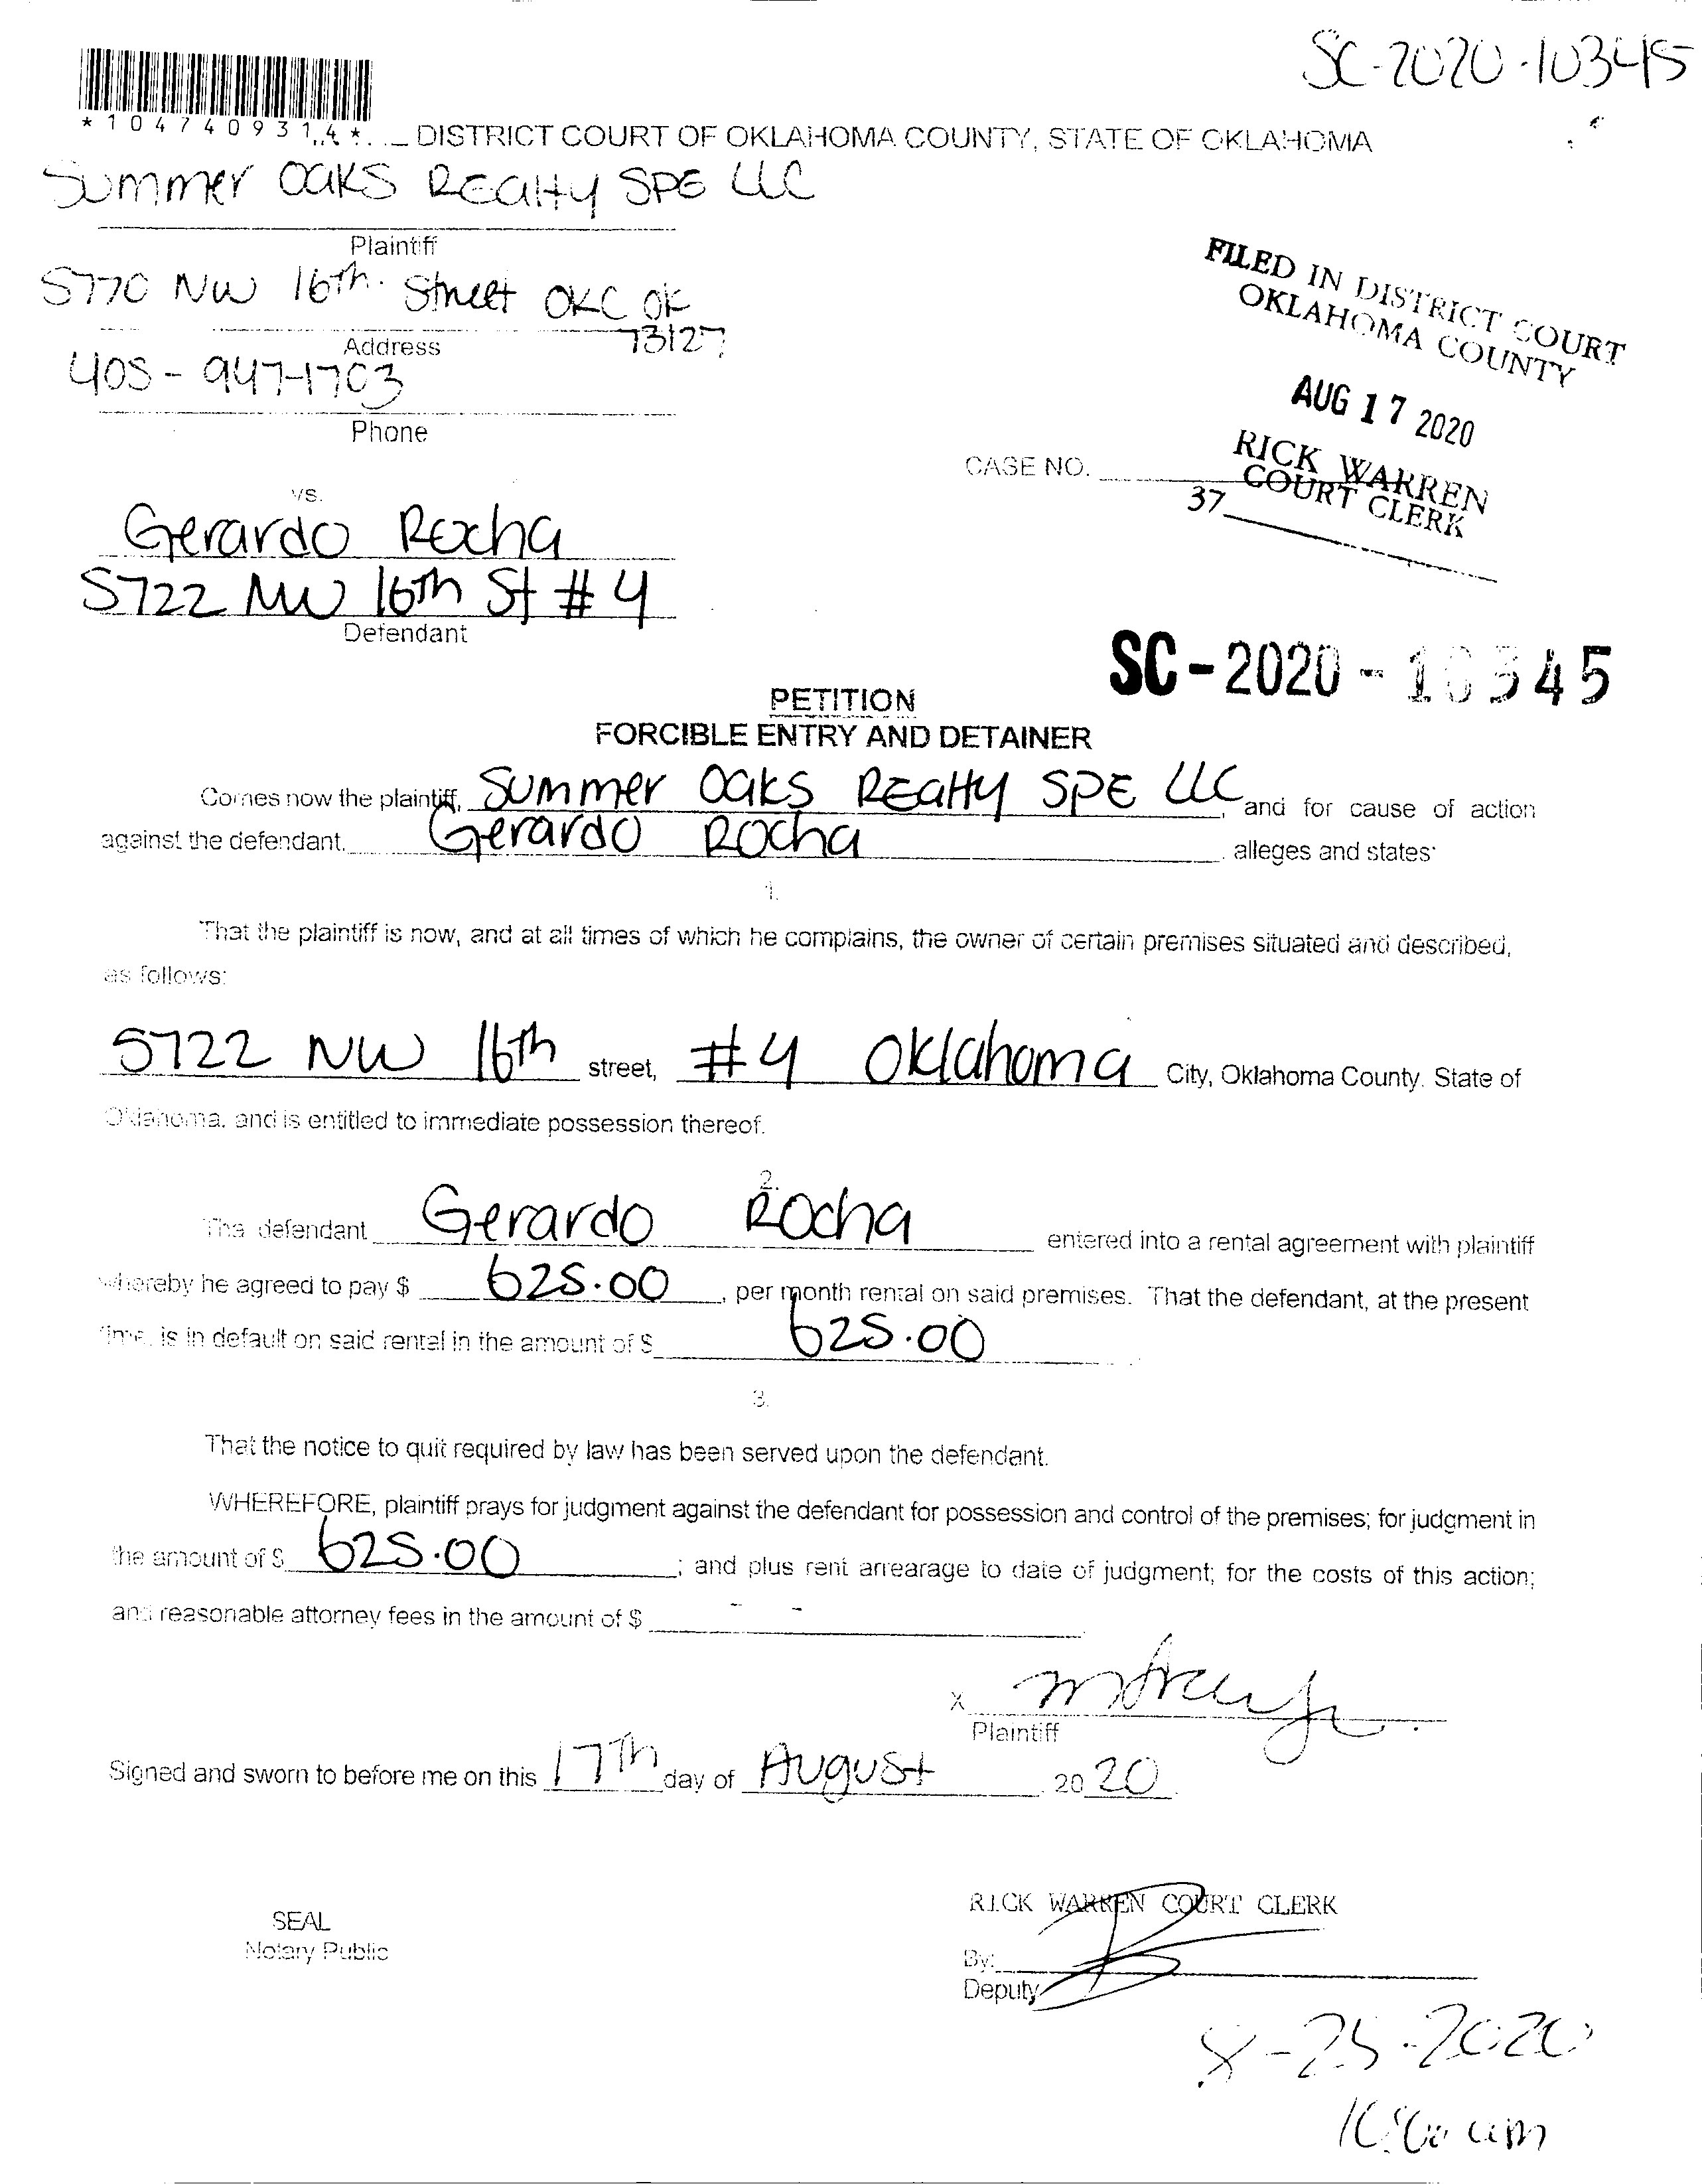 SC-2020-10345
*1047409314*
DISTRICT COURT OF OKLAHOMA COUNTY, STATE OF OKLAHOMA
Summer Oaks Realty SPE LLC
Plaintiff
5770 NW 16th. Street OKC OK
73127
Address
405-947-1703
Phone
FILED IN DISTRICT COURT
OKLAHOMA COUNTY
AUG 17 2020
RICK WARREN
COURT CLERK
37
CASE NO.
vs.
Gerardo Rocha
5722 NW 16th St #4
Defendant
SC-2020-10345
PETITION
FORCIBLE ENTRY AND DETAINER
Comes now the plaintiff, Summer Oaks Realty SPE LLC, and for cause of action
against the defendant, Gerardo Rocha alleges and states:
1.
That the plaintiff is now, and at all times of which he complains, the owner of certain premises situated and described,
as follows:
5722 NW 16th street, #4 Oklahoma City, Oklahoma County, State of
Oklahoma, and is entitled to immediate possession thereof.
2.
The defendant Gerardo Rocha entered into a rental agreement with plaintiff
whereby he agreed to pay $ 625.00, per month rental on said premises. That the defendant, at the present
time, is in default on said rental in the amount of $ 625.00
3.
That the notice to quit required by law has been served upon the defendant.
WHEREFORE, plaintiff prays for judgment against the defendant for possession and control of the premises; for judgment in
the amount of $ 625.00; and plus rent arrearage to date of judgment; for the costs of this action;
and reasonable attorney fees in the amount of $ - -
X
Plaintiff
Signed and sworn to before me on this 17th day of August, 2020.
RICK WARREN COURT CLERK
SEAL
Notary Public
By:
Deputy
8-25-2020